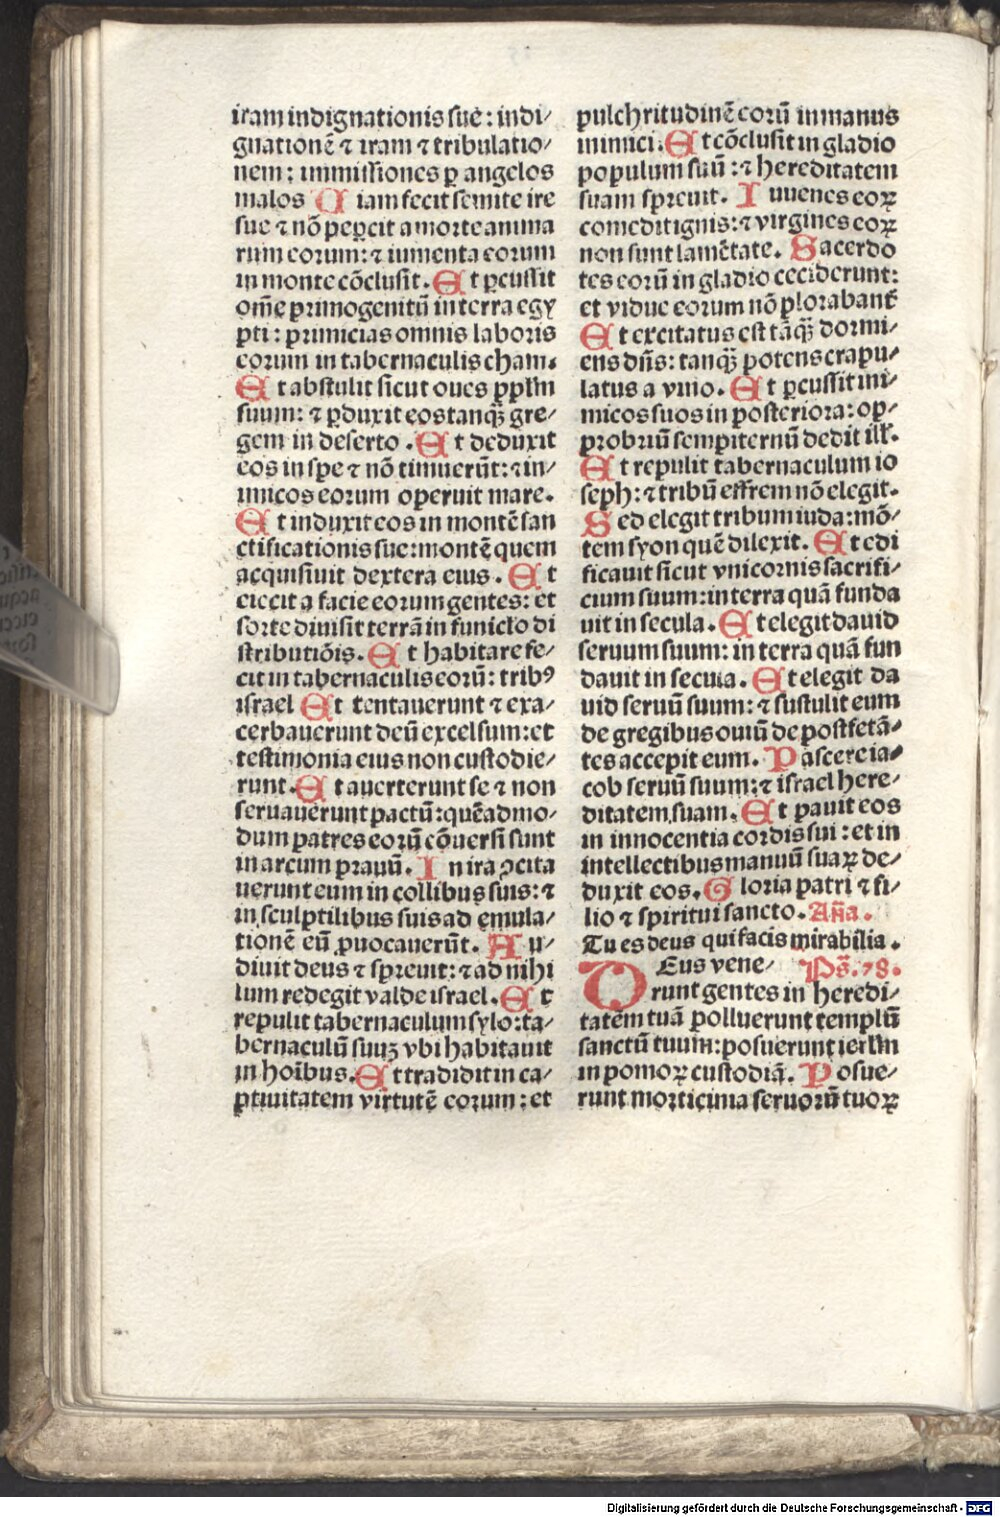 iram indignationis sue: indi/
gnationē ⁊ iram ⁊ tribulatio/
nem: immissiones ꝑ angelos
malos Uiam fecit semite ire
sue ⁊ nō peꝑcit a morte anima
rum eorum: ⁊ iumenta eorum
in monte cōclusit. Et ꝑcussit
omē primogenitū in terra egy
pti: primicias omnis laboris
eorum in tabernaculis cham.
Et abstulit sicut oues pplm
suum: ⁊ ꝑduxit eos tanꝙ̄ gre/
gem in deserto. Et deduxit
eos in spe ⁊ nō timuerūt: ⁊ in/
imicos eorum operuit mare.
Et induxit eos in montē san
ctificationis sue: montē quem
acquisiuit dextera eius. Et
eiecit a facie eorum gentes: et
sorte diuisit terrā in funiclo di
stributiōis. Et habitare fe/
cit in tabernaculis eorū: tribꝰ
israel Et tentauerunt ⁊ exa/
cerbauerunt deū excelsum: et
testimonia eius non custodie/
runt. Et auerterunt se ⁊ non
seruauerunt pactū: quēadmo/
dum patres eorū cōuersi sunt
in arcum prauū. In ira ꝯcita
uerunt eum in collibus suis: ⁊
in sculptilibus suis ad emula/
tionē eū ꝓuocauerūt. Au/
diuit deus ⁊ spreuit: ⁊ ad nihi
lum redegit valde israel. Et
repulit tabernaculum sylo: ta/
bernaculū suuꝫ vbi habitauit
in hoībus. Et tradidit in ca/
ptiuitatem virtutē eorum: et
pulchritudinē eorū in manus
inimici. Et cōclusit in gladio
populum suū: ⁊ hereditatem
suam spreuit. Iuuenes eoꝝ
comedit ignis: ⁊ virgines eoꝝ
non sunt lamētate. Sacerdo
tes eorū in gladio ceciderunt:
et vidue eorum nō plorabant̄
Et excitatus est tāꝙ̄ dormi/
ens dn̄s: tanꝙ̄ potens crapu/
latus a vino. Et ꝑcussit ini/
micos suos in posteriora: op/
probriū sempiternū dedit ill̄.
Et repulit tabernaculum io
seph: ⁊ tribū effrem nō elegit.
Sed elegit tribum iuda: mō/
tem syon quē dilexit. Et edi
ficauit sicut vnicornis sacrifi/
cium suum: in terra quā funda
uit in secula. Et elegit dauid
seruum suum: in terra quā fun
dauit in secula. Et elegit da
uid seruū suum: ⁊ sustulit eum
de gregibus ouiū de postfetā/
tes accepit eum. Pascere ia/
cob seruū suum: ⁊ israel here/
ditatem suam. Et pauit eos
in innocentia cordis sui: et in
intellectibus manuū suaꝝ de/
duxit eos. Gloria patri ⁊ fi/
lio ⁊ spiritui sancto. Añа.
Tu es deus qui facis mirabilia.
DEus vene/ Ps̄. 78.
runt gentes in heredi/
tatem tuā polluerunt templū
sanctū tuum: posuerunt ierlm
in pomoꝝ custodiā. Posue/
runt morticinia seruorū tuoꝝ
Digitalisierung gefördert durch die Deutsche Forschungsgemeinschaft - DFG